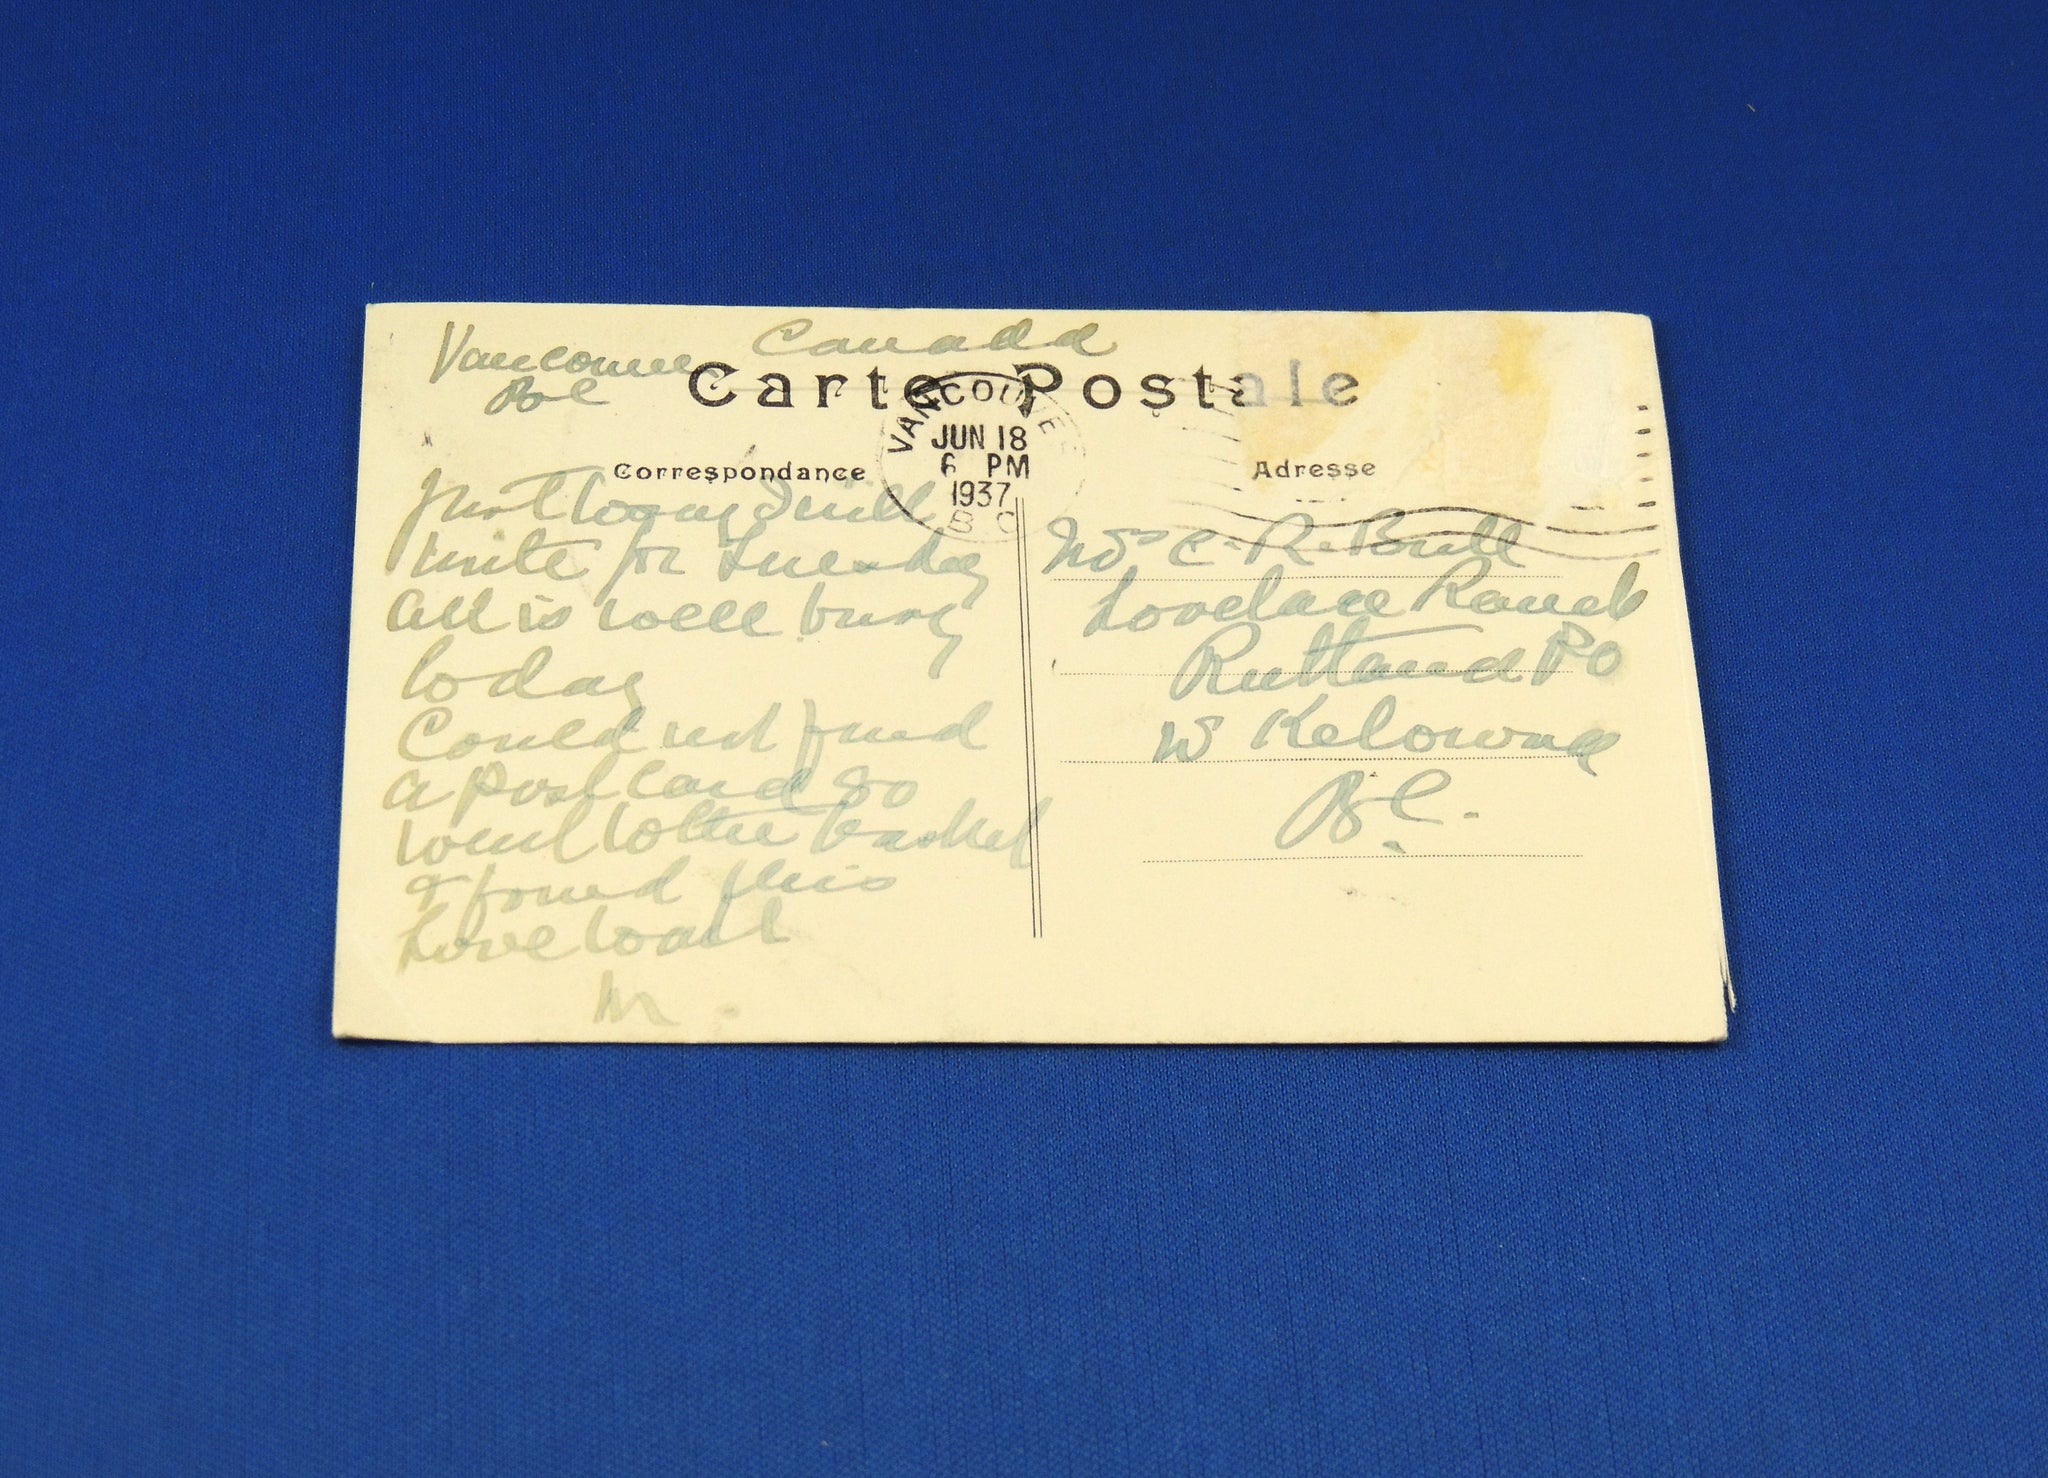 Vancouver Canada
BC
Carte Postale
VANCOUVER
JUN 18
6 PM
1937
B C
Correspondance
Just to say I will
write for Tuesday
All is well busy
today
Could not find
a post card so
went to the basket
& found this
Love to all
M
Adresse
Mrs C. R. Bull
Lovelace Ranch
Rutland PO
Kelowna
B.C.